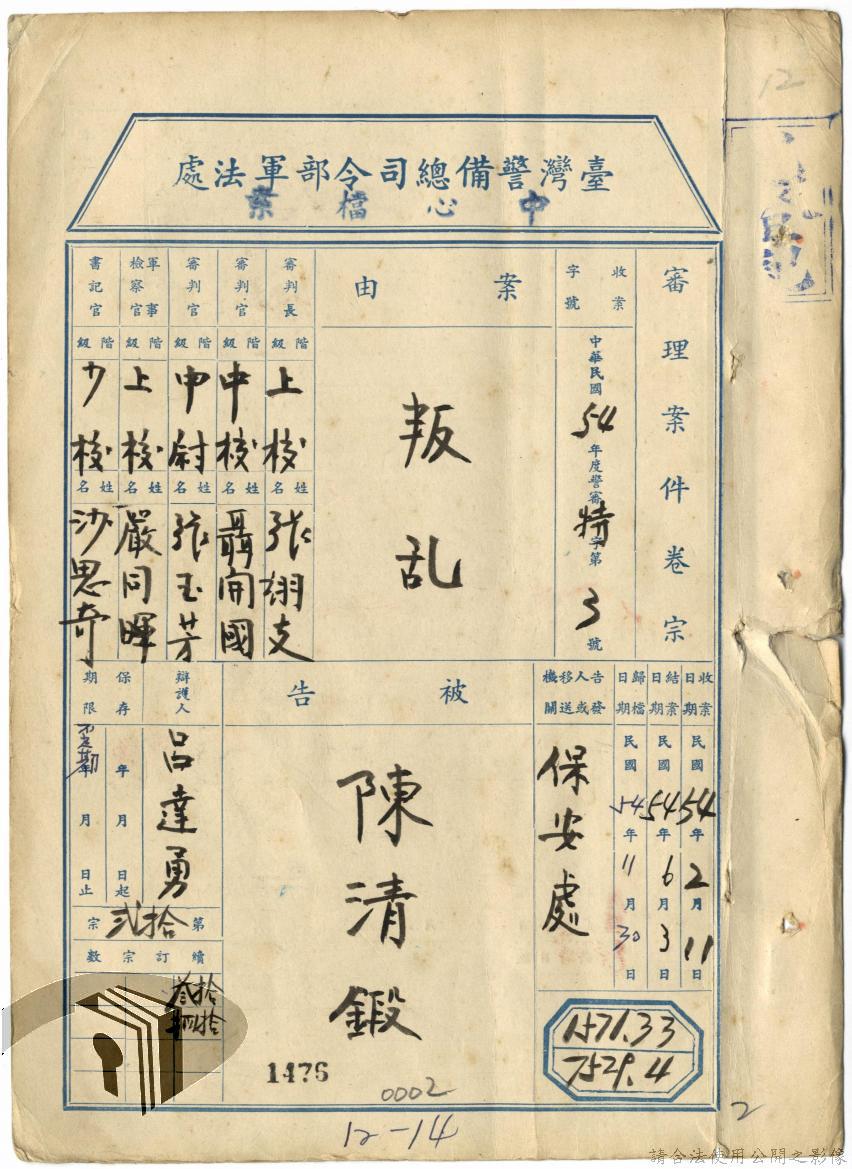 12
臺灣警備總司令部軍法處
中心檔案
審理案件卷宗
收案字號
中華民國54年度警審特字第3號
案由
叛乱
審判長
階級
上校
姓名
張翊支
審判官
階級
中校
姓名
聶開國
審判官
階級
中尉
姓名
張玉芳
軍事檢察官
階級
上校
姓名
嚴同暉
書記官
階級
少校
姓名
沙思奇
收案日期
民國54年2月11日
結案日期
民國54年6月3日
歸檔日期
民國54年11月30日
告發人或移送機關
保安處
被告
陳清鍛
辯護人
呂達勇
保存期限
年月日起
年月日止
第拾貳宗
續訂宗數
拾叁
拾肆
1571.33
7529.4
1476
0002
12-14
2
請合法使用公開之影像